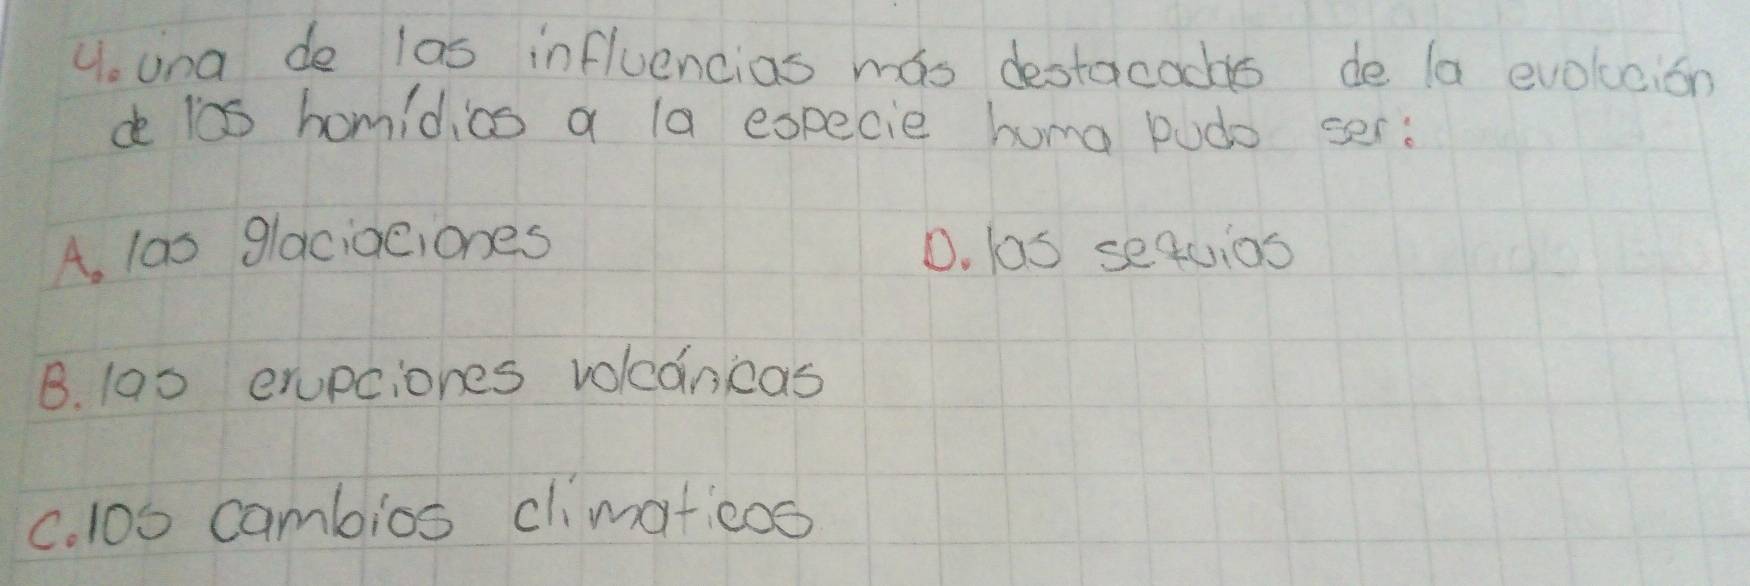 4. una de las influencias más destacadas de la evolución
de los homídios a la especie huma pudo ser:
A. las glaciaciones
D. las sequias
B. las erupciones volcánicas
C. los cambios climaticos